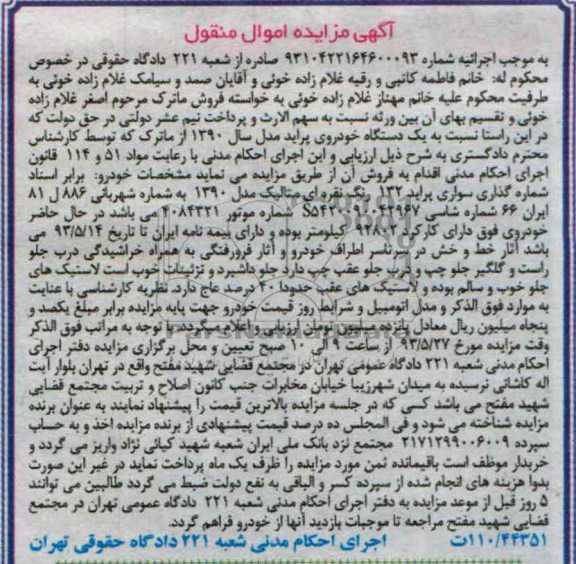 آگهی مزایده اموال منقول
به موجب اجرائیه شماره ۹۳۱۰۴۲۲۱۶۴۶۰۰۰۹۳ صادره از شعبه ۲۲۱ دادگاه حقوقی در خصوص
محکوم له: خانم فاطمه کاتبی و رقیه غلام زاده خوئی و آقایان صمد و سیامک غلام زاده خوئی به
طرفیت محکوم علیه خانم مهناز غلام زاده خوئی به خواسته فروش ماترک مرحوم اصغر غلام زاده
خوئی و تقسیم بهای آن بین ورثه نسبت به سهم الارث و پرداخت نیم عشر دولتی در حق دولت که
در این راستا نسبت به یک دستگاه خودروی پراید مدل سال ۱۳۹۰ از ماترک که توسط کارشناس
محترم دادگستری به شرح ذیل ارزیابی و این اجرای احکام مدنی با رعایت مواد ۵۱ و ۱۱۴ قانون
اجرای احکام مدنی اقدام به فروش آن از طریق مزایده می نماید مشخصات خودرو: برابر اسناد
شماره گذاری سواری پراید ۱۳۲ رنگ نقره ای متالیک مدل ۱۳۹۰ به شماره شهربانی ۸۸۶ ل ۸۱
ایران ۶۶ شماره شاسی شماره موتور ۴۰۸۴۳۲۱ می باشد در حال حاضر
خودروی فوق دارای کارکرد ۹۲۸۰۲ کیلومتر بوده و دارای بیمه نامه ایران تا تاریخ ۹۳/۵/۱۴ می
باشد آثار خط و خش در سرتاسر اطراف خودرو و آثار فرورفتگی به همراه خراشیدگی درب جلو
راست و گلگیر جلو چپ و درب جلو عقب چپ دارد جلو داشبرد و تزئینات خوب است لاستیک های
جلو خوب و سالم بوده و لاستیک های عقب حدودا ۴۰ درصد عاج دارد. نظریه کارشناسی با عنایت
به موارد فوق الذکر و مدل اتومبیل و شرایط روز قیمت خودرو جهت پایه مزایده برابر مبلغ یکصد و
پنجاه میلیون ریال معادل پانزده میلیون تومان ارزیابی و اعلام میگردد. با توجه به مراتب فوق الذکر
وقت مزایده مورخ ۹۳/۵/۲۷ از ساعت ۹ الی ۱۰ صبح تعیین و محل برگزاری مزایده دفتر اجرای
احکام مدنی شعبه ۲۲۱ دادگاه عمومی تهران در مجتمع قضایی شهید مفتح واقع در تهران بلوار آیت
اله کاشانی نرسیده به میدان شهرزیبا خیابان مخابرات جنب کانون اصلاح و تربیت مجتمع قضایی
شهید مفتح می باشد کسی که در جلسه مزایده بالاترین قیمت را پیشنهاد نمایند به عنوان برنده
مزایده شناخته می شود و فی المجلس ده درصد قیمت پیشنهادی از برنده مزایده اخذ و به حساب
سپرده ۲۱۷۱۲۹۹۰۰۶۰۰۹ مجتمع نزد بانک ملی ایران شعبه شهید کیائی نژاد واریز می گردد و
خریدار موظف است باقیمانده ثمن مورد مزایده را ظرف یک ماه پرداخت نماید در غیر این صورت
بدوا هزینه های انجام شده از سپرده کسر و الباقی به نفع دولت ضبط می گردد طالبین می توانند
۵ روز قبل از موعد مزایده به دفتر اجرای احکام مدنی شعبه ۲۲۱ دادگاه عمومی تهران در مجتمع
قضایی شهید مفتح مراجعه تا موجبات بازدید آنها از خودرو فراهم گردد.
۱۱۰/۴۴۳۵۱ت اجرای احکام مدنی شعبه ۲۲۱ دادگاه حقوقی تهران